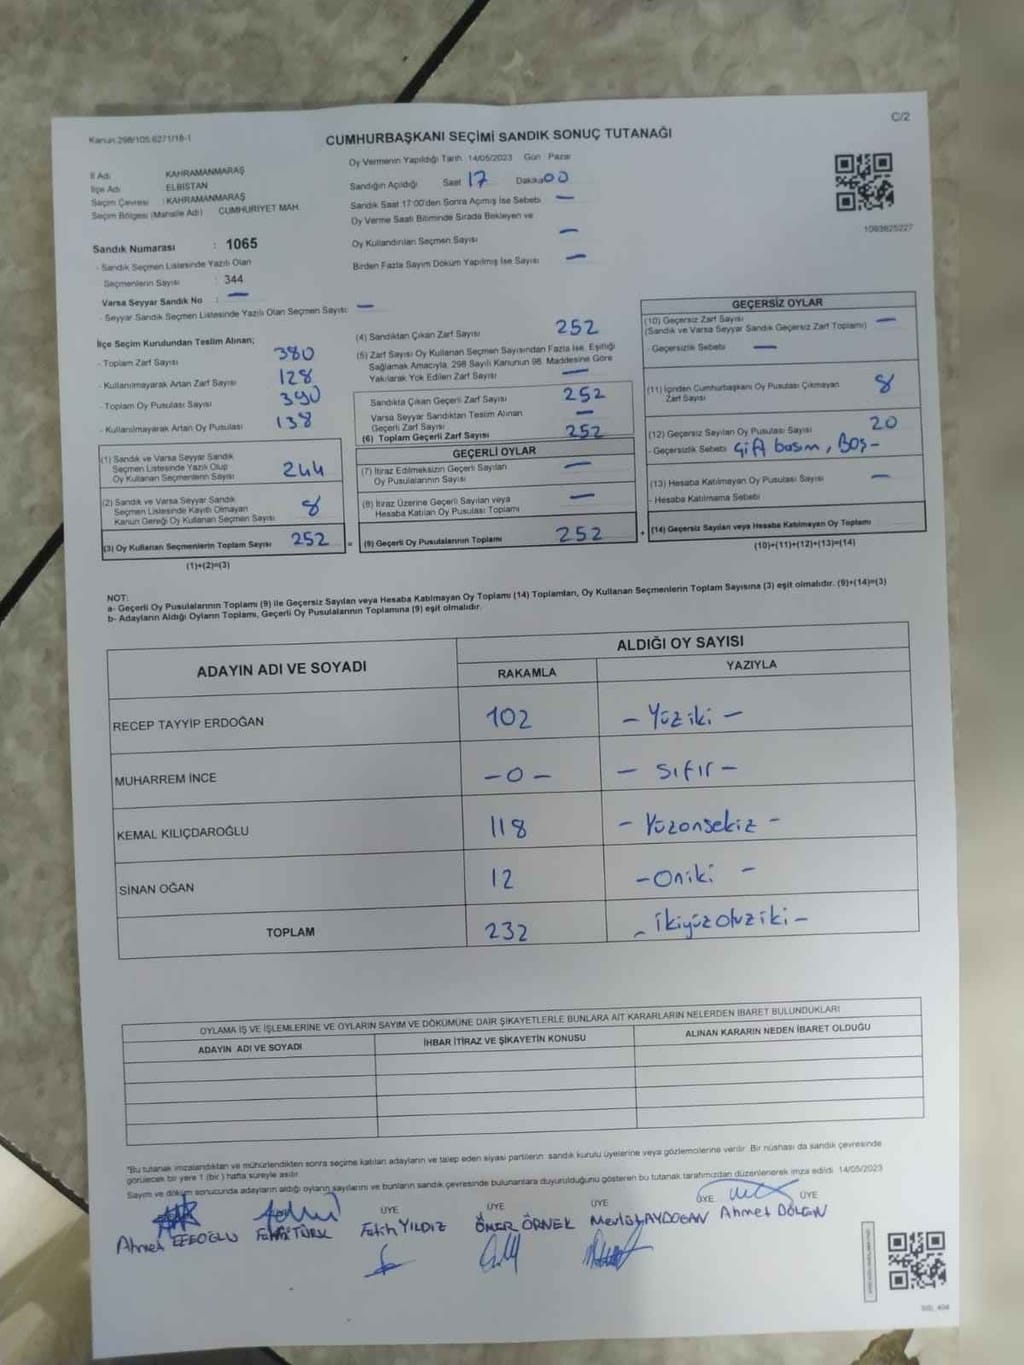 C/2
Kanun:298/105.6271/18-1
CUMHURBAŞKANI SEÇİMİ SANDIK SONUÇ TUTANAĞI
İl Adı KAHRAMANMARAŞ
İlçe Adı ELBİSTAN
Seçim Çevresi : KAHRAMANMARAŞ
Seçim Bölgesi (Mahalle Adı) CUMHURİYET MAH.
Sandık Numarası : 1065
- Sandık Seçmen Listesinde Yazılı Olan
Seçmenlerin Sayısı : 344
Varsa Seyyar Sandık No : —
- Seyyar Sandık Seçmen Listesinde Yazılı Olan Seçmen Sayısı: —
Oy Vermenin Yapıldığı Tarih 14/05/2023 Gün Pazar
Sandığın Açıldığı Saat 17 Dakika 00
Sandık Saat 17:00'den Sonra Açımış İse Sebebi —
Oy Verme Saati Bitiminde Sırada Bekleyen ve
Oy Kullandırılan Seçmen Sayısı —
Birden Fazla Sayım Döküm Yapılmış İse Sayısı —
1093625227
İlçe Seçim Kurulundan Teslim Alınan;
- Toplam Zarf Sayısı 380
- Kullanılmayarak Artan Zarf Sayısı 128
- Toplam Oy Pusulası Sayısı 390
- Kullanılmayarak Artan Oy Pusulası 138
(1) Sandık ve Varsa Seyyar Sandık
Seçmen Listesinde Yazılı Olup
Oy Kullanan Seçmenlerin Sayısı 244
(2) Sandık ve Varsa Seyyar Sandık
Seçmen Listesinde Kayıtlı Olmayan
Kanun Gereği Oy Kullanan Seçmen Sayısı 8
(3) Oy Kullanan Seçmenlerin Toplam Sayısı 252
(1)+(2)=(3)
(4) Sandıktan Çıkan Zarf Sayısı 252
(5) Zarf Sayısı Oy Kullanan Seçmen Sayısından Fazla İse, Eşitliği
Sağlamak Amacıyla, 298 Sayılı Kanunun 98. Maddesine Göre
Yakılarak Yok Edilen Zarf Sayısı —
Sandıkta Çıkan Geçerli Zarf Sayısı 252
Varsa Seyyar Sandıktan Teslim Alınan
Geçerli Zarf Sayısı —
(6) Toplam Geçerli Zarf Sayısı 252
GEÇERLİ OYLAR
(7) İtiraz Edilmeksizin Geçerli Sayılan
Oy Pusulalarının Sayısı —
(8) İtiraz Üzerine Geçerli Sayılan veya
Hesaba Katılan Oy Pusulası Toplamı —
= (9) Geçerli Oy Pusulalarının Toplamı 252
GEÇERSİZ OYLAR
(10) Geçersiz Zarf Sayısı —
(Sandık ve Varsa Seyyar Sandık Geçersiz Zarf Toplamı)
- Geçersizlik Sebebi —
(11) İçinden Cumhurbaşkanı Oy Pusulası Çıkmayan
Zarf Sayısı 8
(12) Geçersiz Sayılan Oy Pusulası Sayısı 20
- Geçersizlik Sebebi Çift basım, Boş -
(13) Hesaba Katılmayan Oy Pusulası Sayısı —
- Hesaba Katılmama Sebebi
+ (14) Geçersiz Sayılan veya Hesaba Katılmayan Oy Toplamı
(10)+(11)+(12)+(13)=(14)
NOT:
a- Geçerli Oy Pusulalarının Toplamı (9) ile Geçersiz Sayılan veya Hesaba Katılmayan Oy Toplamı (14) Toplamları, Oy Kullanan Seçmenlerin Toplam Sayısına (3) eşit olmalıdır. (9)+(14)=(3)
b- Adayların Aldığı Oyların Toplamı, Geçerli Oy Pusulalarının Toplamına (9) eşit olmalıdır.
ADAYIN ADI VE SOYADI ALDIĞI OY SAYISI
RAKAMLA YAZIYLA
RECEP TAYYİP ERDOĞAN 102 - Yüziki -
MUHARREM İNCE -0- - sıfır -
KEMAL KILIÇDAROĞLU 118 - Yüzonsekiz -
SİNAN OĞAN 12 - Oniki -
TOPLAM 232 - ikiyüzotuziki -
OYLAMA İŞ VE İŞLEMLERİNE VE OYLARIN SAYIM VE DÖKÜMÜNE DAİR ŞİKAYETLERLE BUNLARA AİT KARARLARIN NELERDEN İBARET BULUNDUKLARI
ADAYIN ADI VE SOYADI İHBAR İTİRAZ VE ŞİKAYETİN KONUSU ALINAN KARARIN NEDEN İBARET OLDUĞU
*Bu tutanak imzalandıktan ve mühürlendikten sonra seçime katılan adayların ve talep eden siyasi partilerin sandık kurulu üyelerine veya gözlemcilerine verilir. Bir nüshası da sandık çevresinde
görülecek bir yere 1 (bir) hafta süreyle asılır.
Sayım ve döküm sonucunda adayların aldığı oyların sayılarını ve bunların sandık çevresinde bulunanlara duyurulduğunu gösteren bu tutanak tarafımızdan düzenlenerek imza edildi. 14/05/2023
ÜYE ÜYE ÜYE ÜYE ÜYE
Ahmet EFEOĞLU Fatih YILDIZ ÖMER ÖRNEK Mevlüt AYDOĞAN Ahmet DÖLGEN